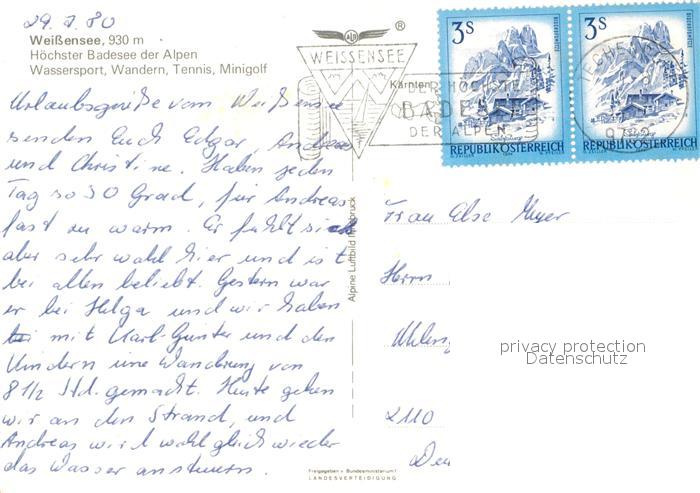 29.7.80
Weißensee, 930 m
Höchster Badesee der Alpen
Wassersport, Wandern, Tennis, Minigolf
Urlaubsgrüße vom Weißensee
senden Euch Edgar, Andreas
und Christine. Haben jeden
Tag so 30 Grad, für Andreas
fast zu warm. Er fühlt sich
aber sehr wohl hier und ist
bei allen beliebt. Gestern war
er bei Helga und wir haben
mit Karl-Günter und den
Kindern eine Wanderung von
8 1/2 Std. gemacht. Heute gehen
wir an den Strand, und
Andreas wird wohl gleich wieder
das Wasser ansteuern.
Alpine Luftbild Innsbruck
Freigegeben v. Bundesministerium f.
LANDESVERTEIDIGUNG
®
WEISSENSEE
Kärnten
HÖCHSTE
BADE
DER ALPEN
3S
REPUBLIK ÖSTERREICH
3S
REPUBLIK ÖSTERREICH
Frau Else Meyer
Herrn
2110
privacy protection
Datenschutz